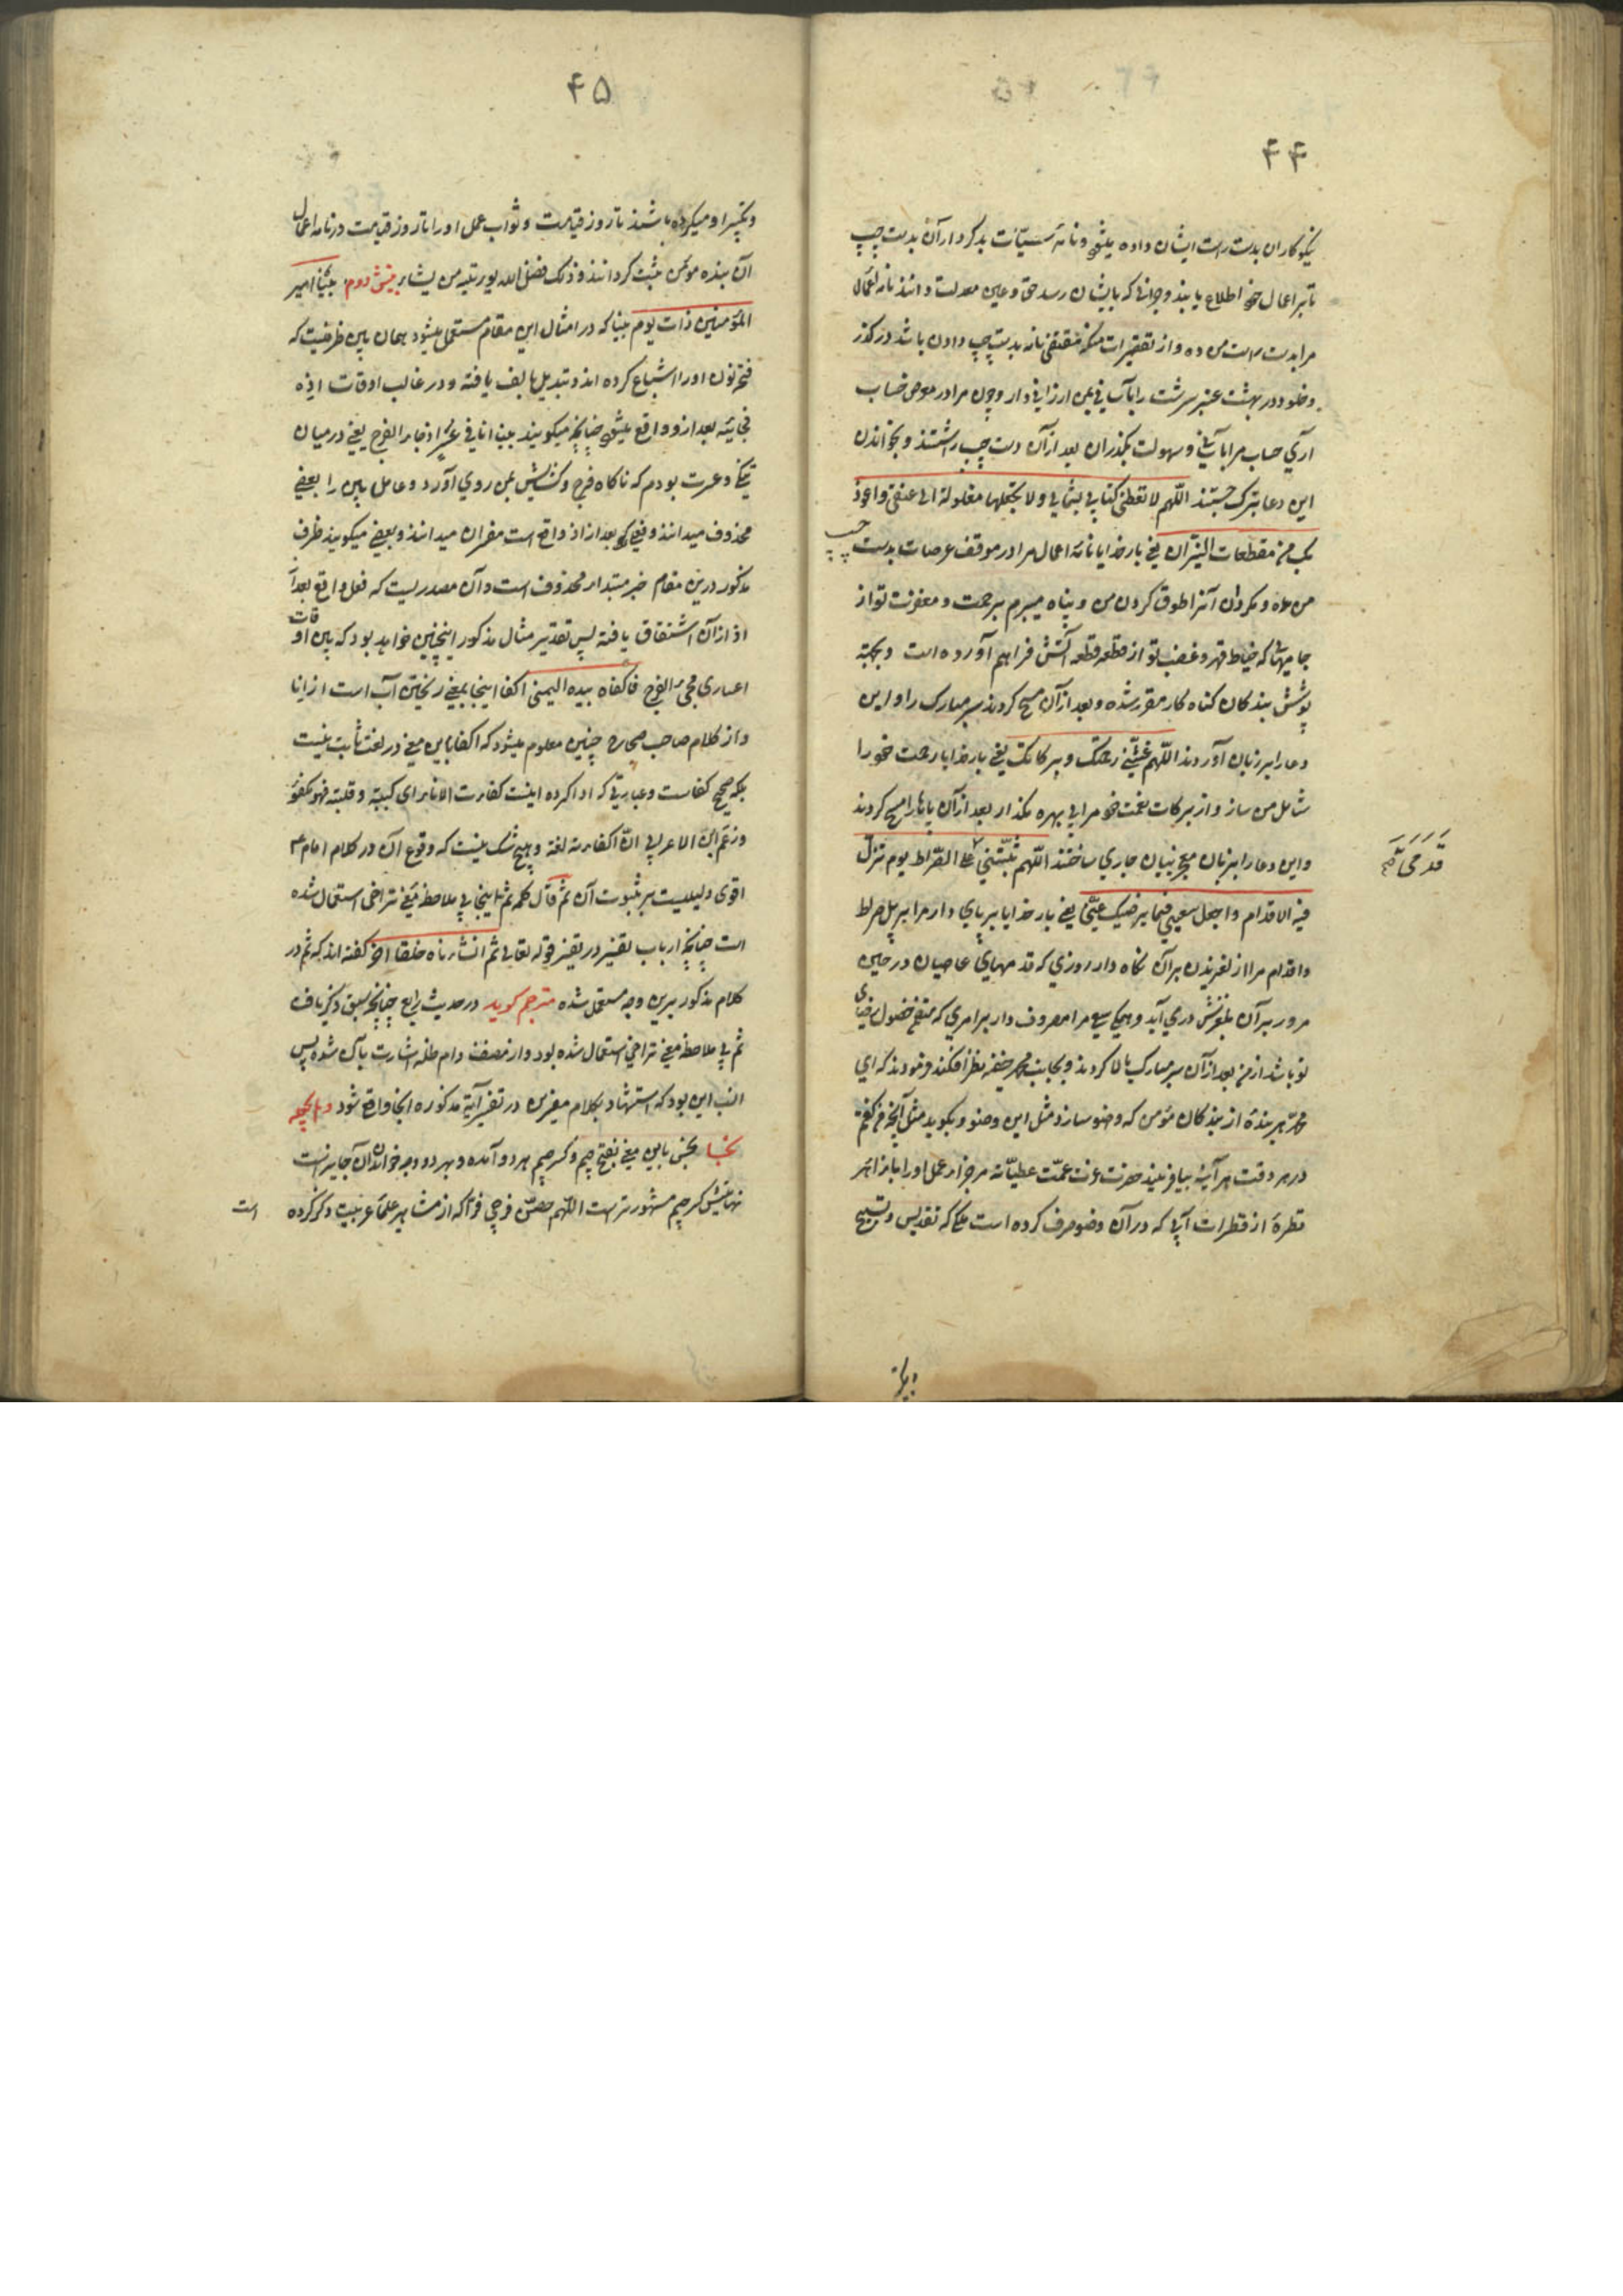 ۴۴
نیکوکاران بدست راست ایشان داده میشود و نامهٔ سیئات بدکرداران بدست چپ
تا بر اعمال خود اطلاع یابند و جزائی که بایشان رسد حق و عین معدلت دانند نامهٔ اعمال
مرا بدست راست من ده و از تقصیرات منکه مقتضی نامه بدست چپ دادن باشد درگذر
و خلود در بهشت عنبر سرشت را بآسانی بمن ارزانی دار و چون مرا در معرض حساب
آری حساب مرا بآسانی و سهولت بگذران بعد از آن دست چپ را شستند و بخواندن
این دعا تبرک جستند اللهم لا تعطنی کتابی بشمالی ولا تجعلها مغلولة الی عنقی واعوذ
بک من مقطعات النیران یعنی بار خدایا نامهٔ اعمال مرا در موقف عرصات بدست چپ
من مده و مگردان آنرا طوق گردن من و پناه میبرم برحمت و مغفرت تو از
جامهائی که خیاط قهر و غضب تو از قطعه قطعه آتش فراهم آورده است و بجهة
پوشش بندگان گناه کار مقرر شده و بعد از آن مسح کردند سر مبارک را و این
دعا را بر زبان آوردند اللهم غشنی رحمتک و برکاتک یعنی بار خدایا رحمت خود را
شامل من ساز و از برکات نعمت خود مرا بی بهره مگذار بعد از آن پاها را مسح کردند
و این دعا را بزبان معجز بیان جاری ساختند اللهم ثبتنی علی الصراط یوم تزل
قدمی
فیه الاقدام واجعل سعیی فیما یرضیک عنی یعنی بار خدایا بر پای دار مرا بر پل صراط
و اقدام مرا از لغزیدن بر آن نگاه دار روزی که قدمهای عاصیان در حین
مرور بر آن بلغزش در می آید و همگی سعی مرا مصروف دار بر امری که منتج حصول رضای
تو باشد از من بعد از آن سر مبارک بالا کردند و بجانب محمد حنفیه نظر افکندند و فرمودند که ای
محمد هر بنده از بندگان مؤمن که وضو سازد مثل این وضو و بگوید مثل آنچه من گفتم
در هر وقت هر آینه بیافریند حضرت عزت عمت عطیاته مر جزاء عمل او را بازاء هر
قطرهٔ از قطرات آبی که در آن وضو صرف کرده است ملکی که تقدیس و تسبیح
۴۵
و تکبیر او میکرده باشند تا روز قیامت و ثواب عمل او را تا روز قیامت در نامهٔ اعمال
آن بنده مؤمن ثبت گردانند و ذلک فضل الله یؤتیه من یشاء بینش دوم بینا امیر
المؤمنین ذات یوم بینا که در امثال این مقام مستعمل میشود همان بین ظرفیت که
فتحه نون او را اشباع کرده اند و تبدیل بالف یافته و در غالب اوقات اذ
فجائیه بعد از و واقع میشود چنانچه میگویند بینا انا فی عسر اذ جاء الفرج یعنی در میان
تنگی و عسرت بودم که ناگاه فرج و گشایش بمن روی آورد و عامل بین را بعضی
محذوف میدانند و فعلی که بعد از اذ واقع است مفسر آن میدانند و بعضی میگویند ظرف
مذکور درین مقام خبر مبتداء محذوف است و آن مصدریست که فعل واقع بعد از
اذ از آن اشتقاق یافته پس تقدیر مثال مذکور اینچنین خواهد بود که بین اوقات
اعساری مجیء الفرج فاکفاه بیده الیمنی اکفا اینجا بمعنی ریختن آب است از انا
و از کلام صاحب صحاح چنین معلوم میشود که اکفا باین معنی در لغت ثابت نیست
بلکه صحیح کفاست و عبارتی که ادا کرده اینست کفات الاناء ای کببته و قلبته فهو مکفو
و زعم ابن الاعرابی ان اکفاته لغة و هیچ شک نیست که وقوع آن در کلام امام ع
اقوی دلیلیست بر ثبوت آن ثم قال کلمه ثم اینجا بی ملاحظه معنی تراخی استعمال شده
است چنانچه ارباب تفسیر در تفسیر قوله تعالی ثم انشاناه خلقا آخر گفته اند که ثم در
کلام مذکور برین وجه مستعمل شده مترجم گوید در حدیث رابع چنانچه سبق ذکر یافت
ثم بی ملاحظه معنی تراخی استعمال شده بود و از مصنف دام ظله اشارت بآن شده پس
انسب این بود که استشهاد بکلام مفسرین در تفسیر آیه مذکوره آنجا واقع شود و لم یجعله
نجسا نجس باین معنی بفتح جیم و کسر جیم هر دو آمده و بهر دو وجه خواندن آن جایز است
نهایتش کسر جیم مشهورتر است اللهم حصن فرجی فرّا که از مشاهیر علماء عربیت ذکر کرده
است